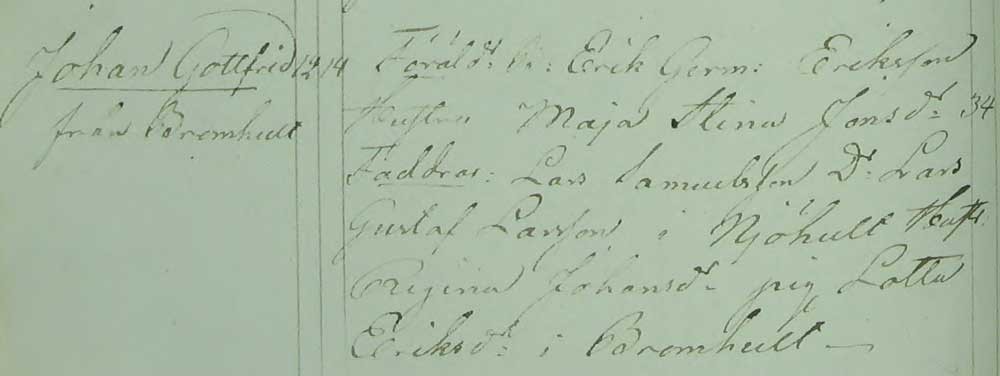 Johan Gottfrid 12 14
från Bromhult
Föräld: B: Erik Germ: Eriksson
Hustru Maja Stina Jonsd: 34
Faddrar: Lars Samuelsson Dr: Lars
Gustaf Larsson i Njöhult Hust:
Regina Johansd: pig Lotta
Eriksd: i Bromhult